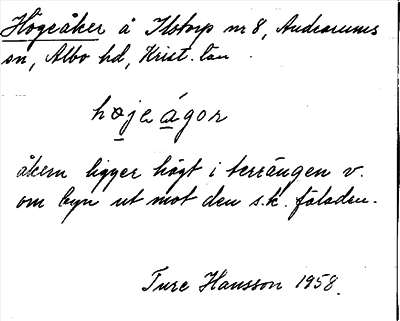 Högeåker å Ilstorp nr 8, Andrarums
sn, Albo hd, Krist. län
høje ágor
åkern ligger högt i terrängen v.
om byn ut mot den s.k. fäladen.
Ture Hansson 1958.